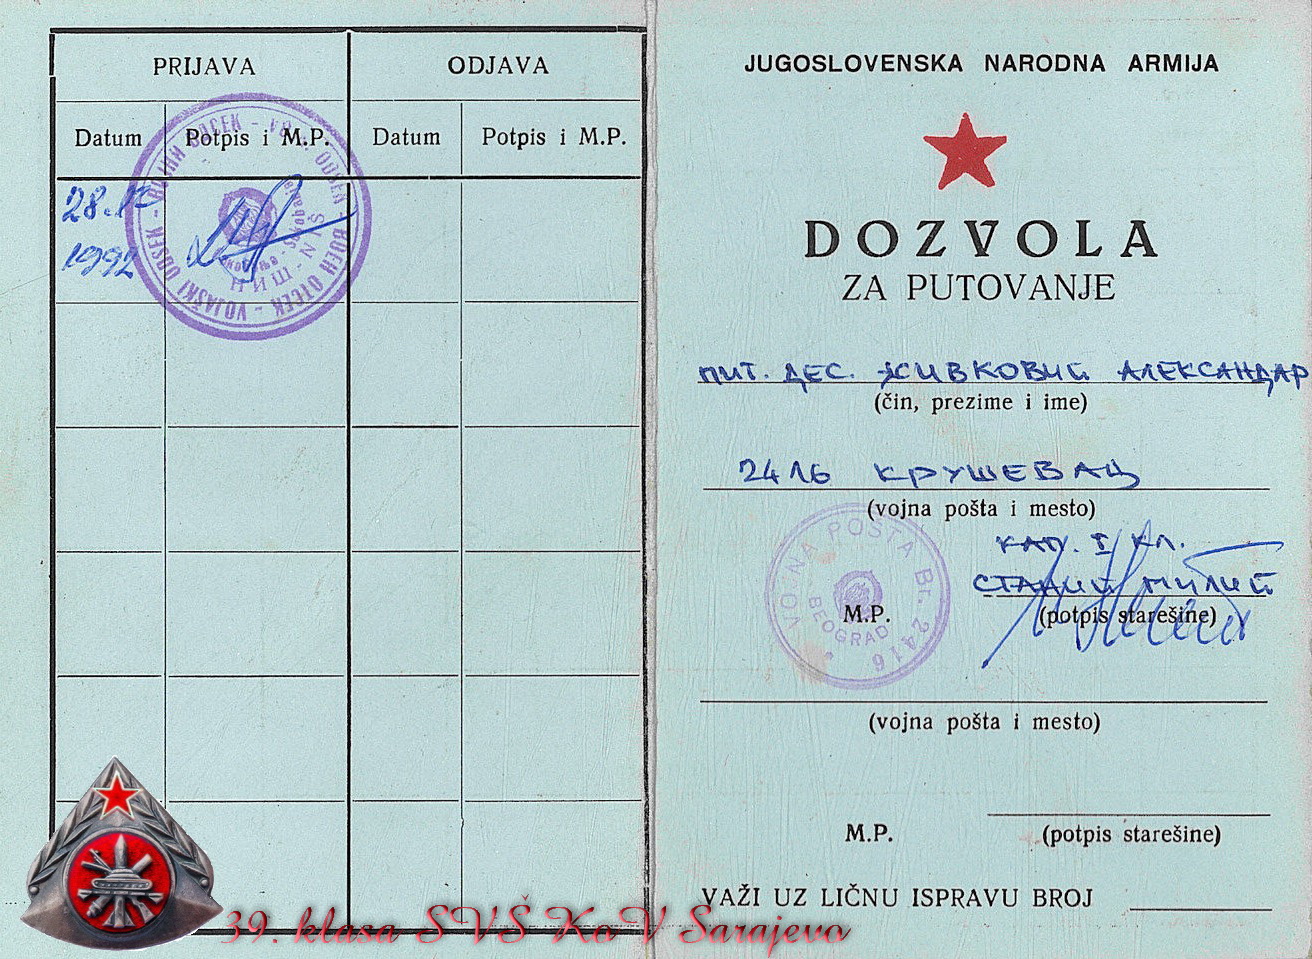 PRIJAVA ODJAVA
Datum Potpis i M.P. Datum Potpis i M.P.
28.12
1992
ВОЈНИ ОДСЕК - VOJNI ODSEK - ВОЕН ОТСЕК - VOJAŠKI ODSEK
НИШ - NIŠ
JUGOSLOVENSKA NARODNA ARMIJA
DOZVOLA
ZA PUTOVANJE
ПИТ. ДЕС. ЖИВКОВИЋ АЛЕКСАНДАР
(čin, prezime i ime)
2416 КРУШЕВАЦ
(vojna pošta i mesto)
КАП. I КЛ.
СТАНИЋ МИЛИЋ
M.P. (potpis starešine)
VOJNA POŠTA Br. 2416
BEOGRAD
(vojna pošta i mesto)
M.P. (potpis starešine)
VAŽI UZ LIČNU ISPRAVU BROJ
39. klasa SVŠ KoV Sarajevo